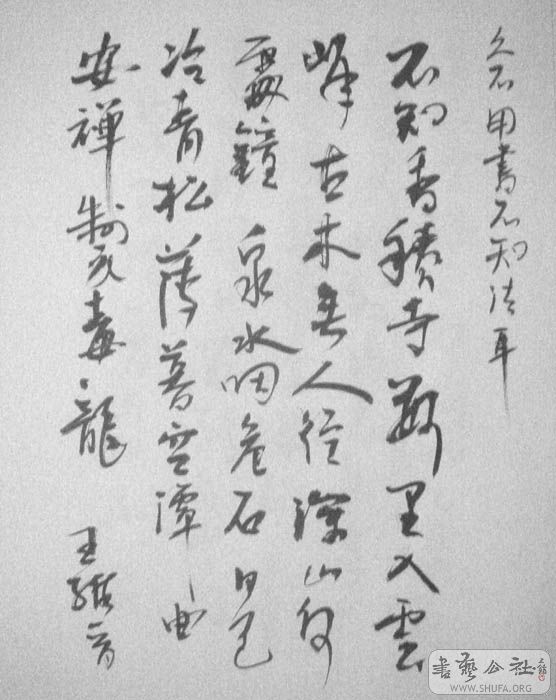 久不用書不知法耳
不知香積寺數里入雲
峰古木無人徑深山何
處鐘泉水咽危石日色
冷青松薄暮空潭曲
安禪制毒龍
王維
書藝公社
WWW.SHUFA.ORG